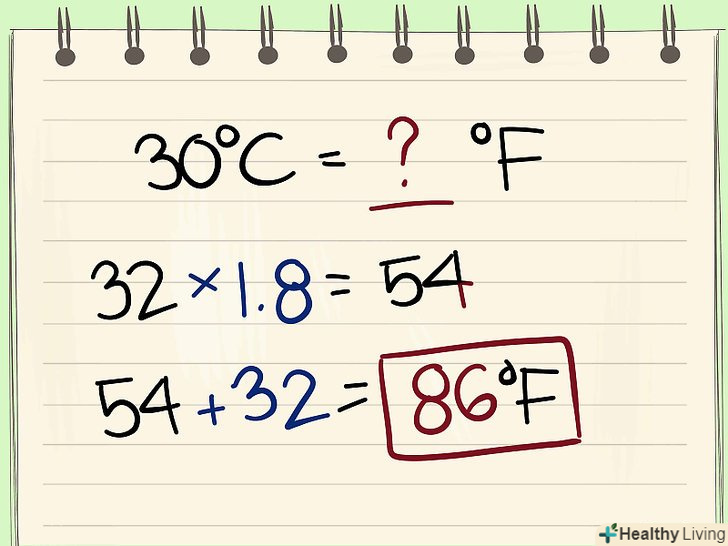 30°C = ? °F
32 × 1.8 = 54
54 + 32 = 86°F
Healthy Living